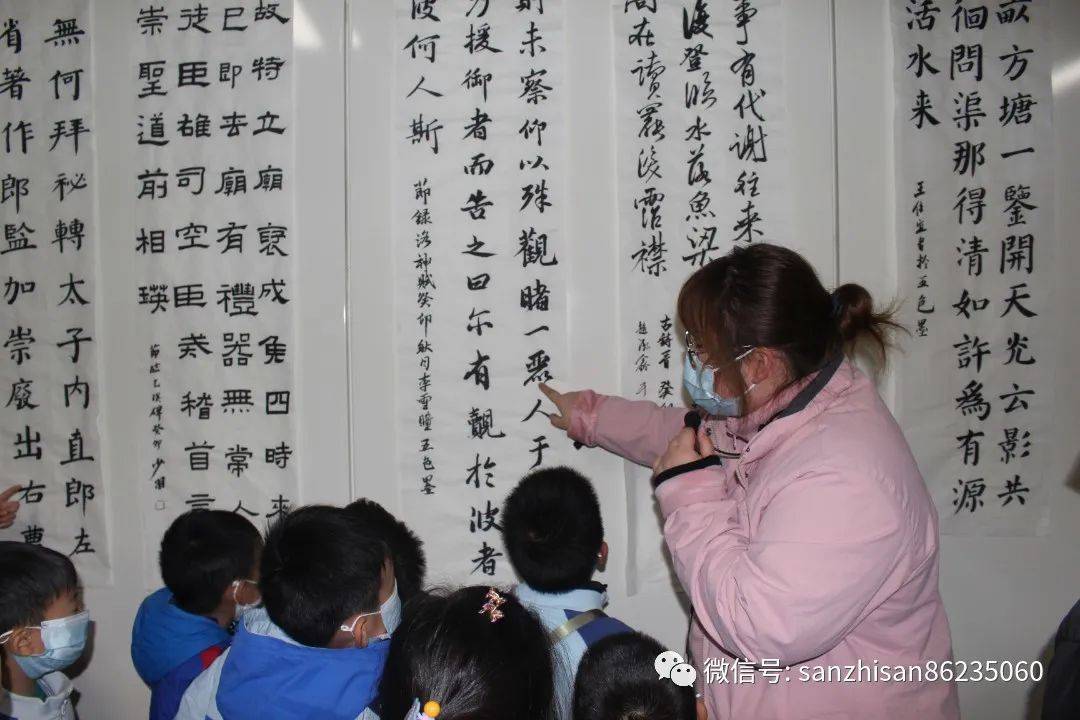 畝方塘一鑒開天光云影共
徊問渠那得清如許為有源
活水来
王佳宜書於五色墨
事有代谢往来
復登临水落魚梁
間在讀罷淚霑襟
則未察仰以殊觀睹一麗人于
援御者而告之曰尔有覿於波者
波何人斯
節録洛神賦癸卯秋月李雪瞳五色墨
故特立廟褒成侯四時来
已即去廟有禮器無常人
徒臣雄司空臣戒稽首言
崇聖道前相瑛
節臨乙瑛碑癸卯
無何拜祕轉太子内直郎左
省著作郎監加崇廢出右曹
微信号: sanzhisan86235060